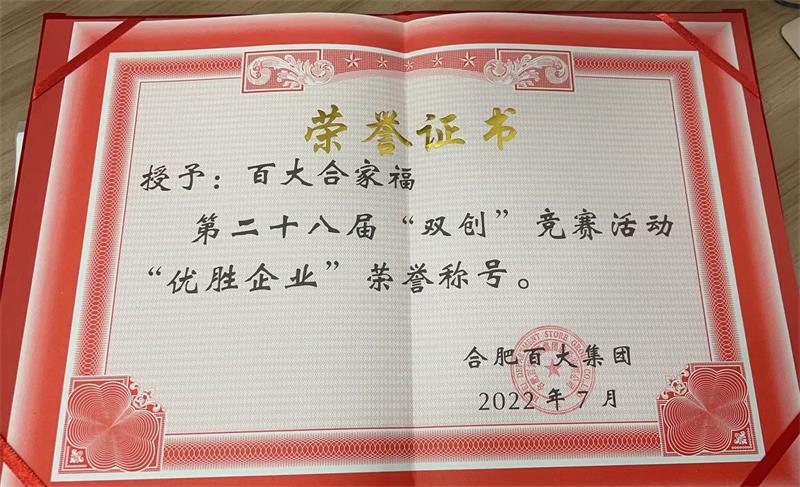 荣誉证书
授予：百大合家福
第二十八届“双创”竞赛活动
“优胜企业”荣誉称号。
合肥百大集团
2022年7月